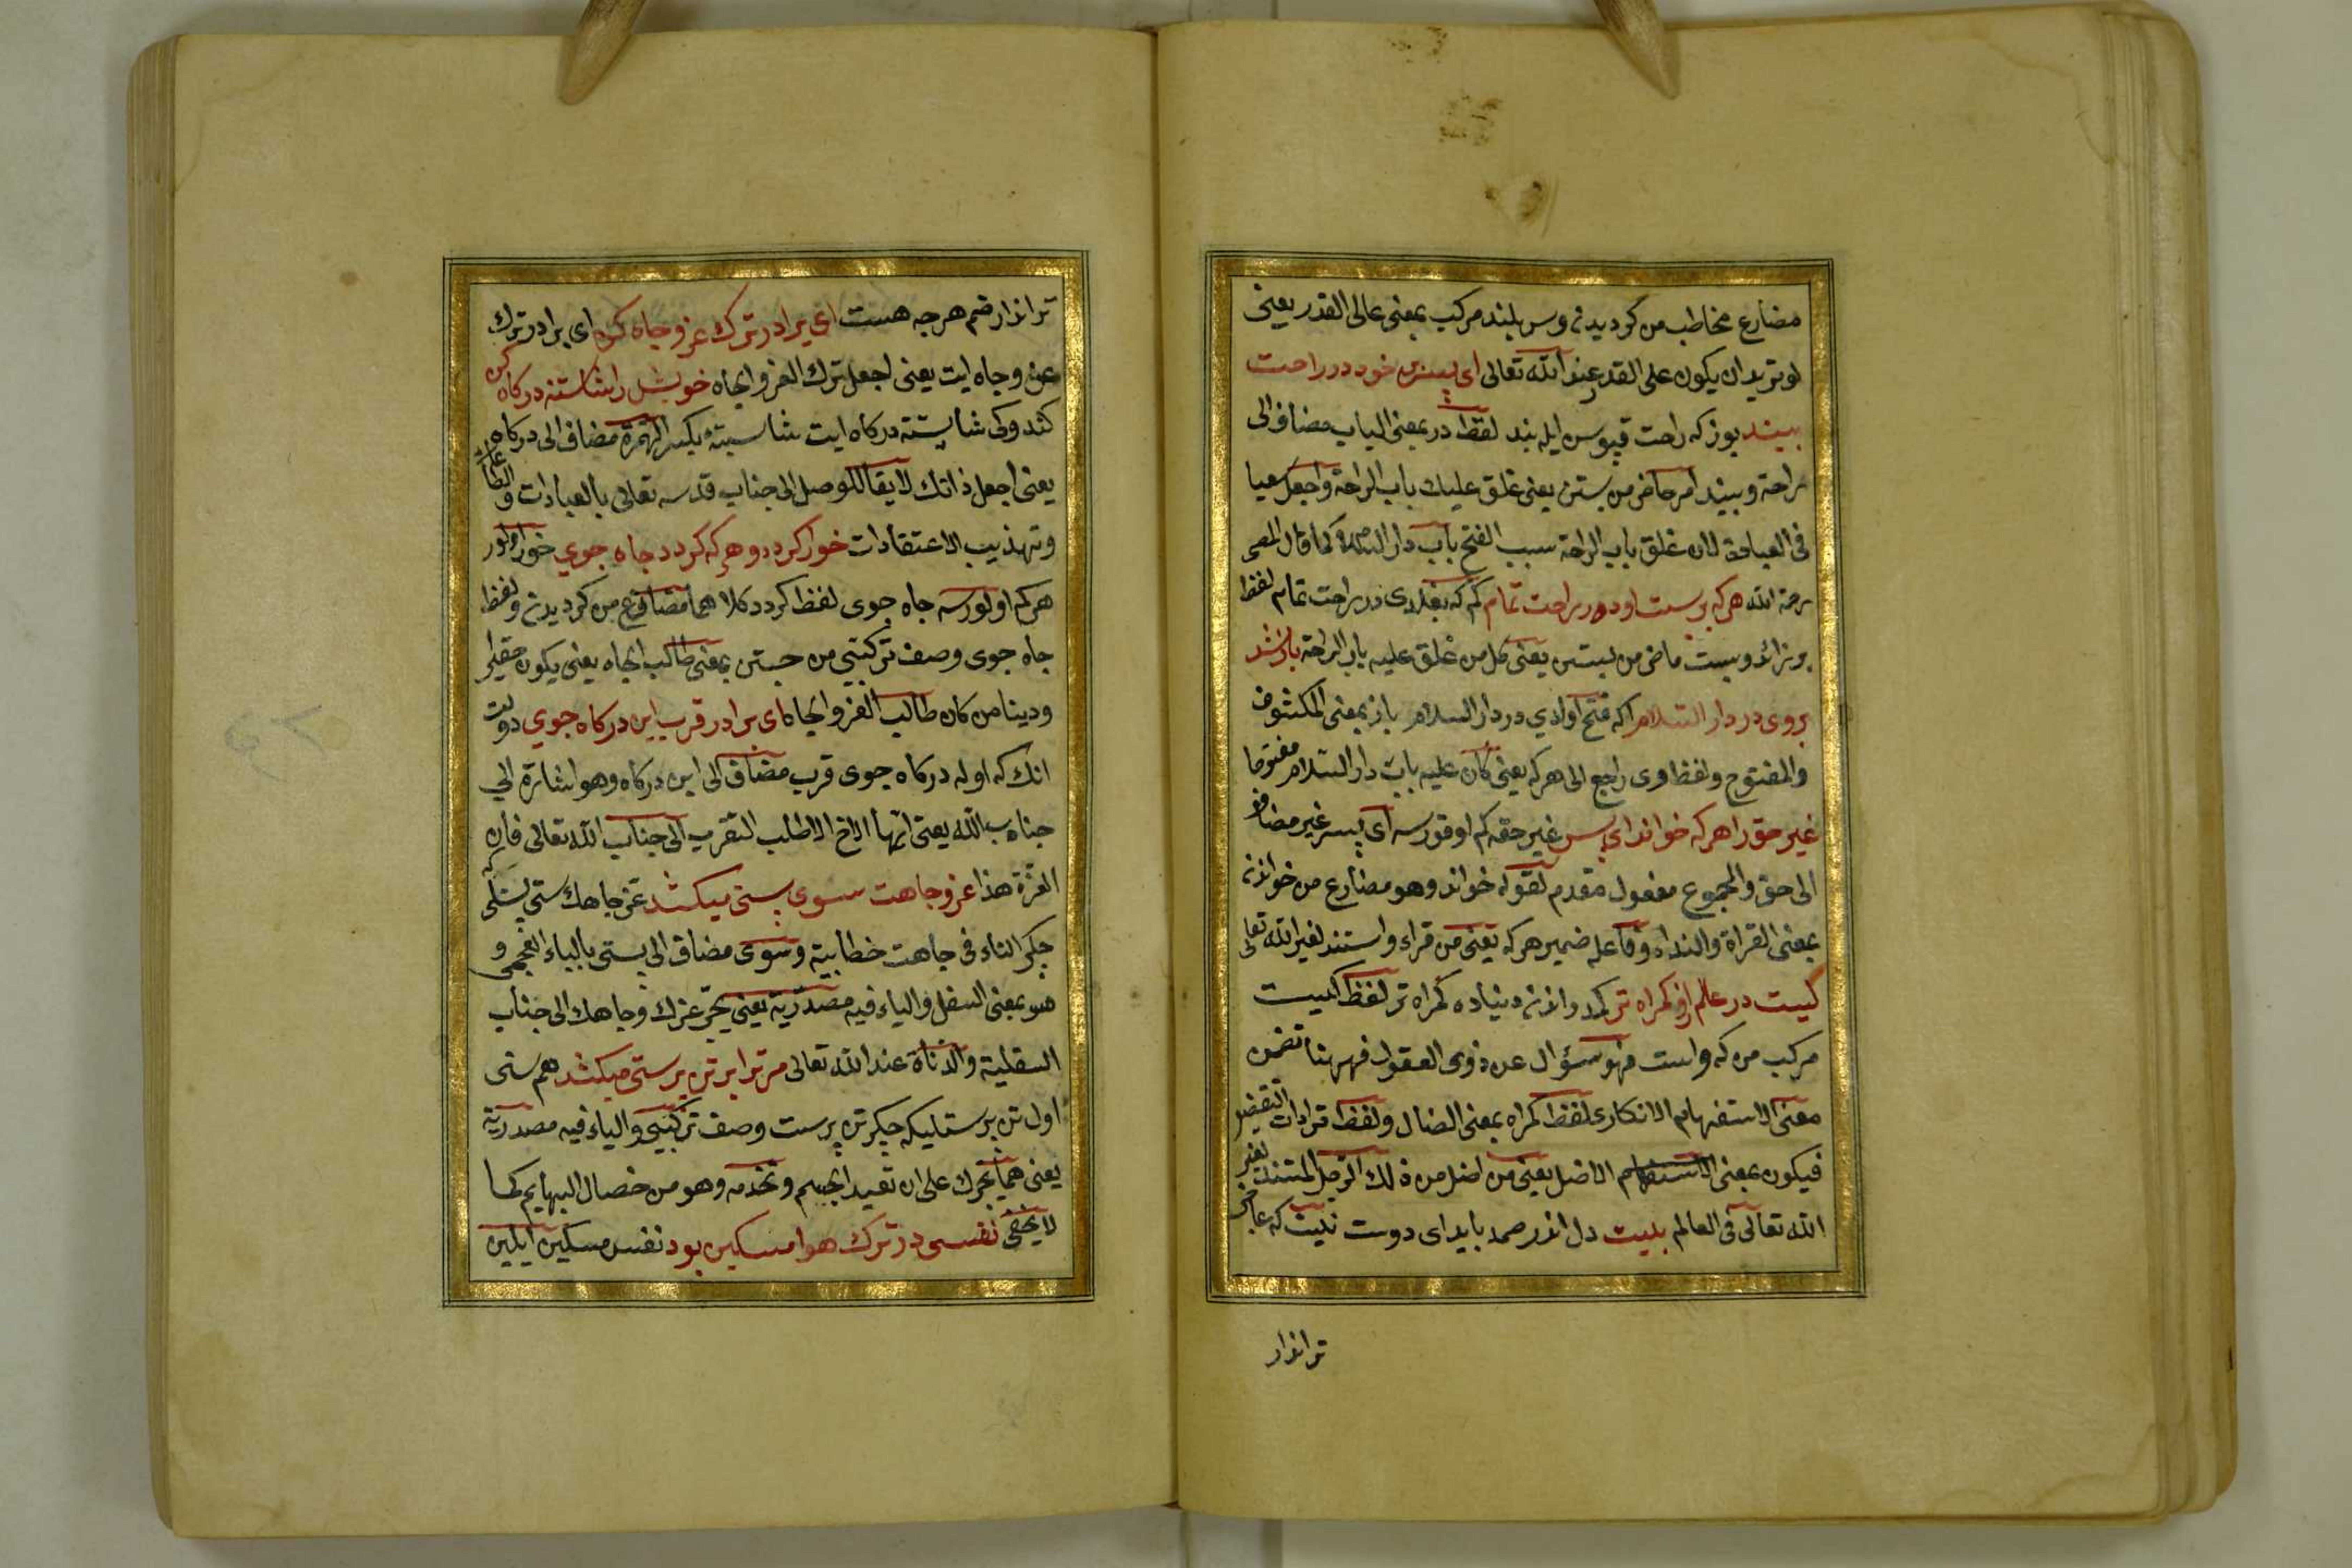 مضارع مخاطب من كرديدن وسر بلند مركب بمعنى عالى القدر يعنى
لو تريد ان يكون على القدر عند الله تعالى اى پسر بر خود در راحت
ببند بوزكه راحت قپوسن ايله بند لفظ در بمعنى الباب مضاف الى
راحة وببند امر حاضر من بستن يعنى غلق عليك باب الراحة واجعل سعيا
فى العبادة لان غلق باب الراحة سبب الفتح باب دار السلامة كما قال المص
رحمة الله هركه بربست او در راحت تمام كم كه بغلادى در راحت تمام لفظ
بر زائد وبست ماضى من بستن يعنى كل من غلق عليه باب الراحة باز شد
بروى در دار السلام اكه فتح اولدي در دار السلام باز بمعنى المكشوف
والمفتوح ولفظ وى راجع الى هركه يعنى كان عليه باب دار السلام مفتوحا
غير حق را هركه خواند اى پسر غير حقه كم اوقورسه اى پسر غير مضاف
الى حق والمجموع مفعول مقدم لقوله خواند وهو مضارع من خواندن
بمعنى القراة والنداء وفاعله ضمير هركه يعنى من قراء واستند لغير الله تعالى
كيست در عالم ازو كمراه تر كمدر اندن دنياده كمراه تر لفظ كيست
مركب من كه واست فهو سؤال عن ذوى العقول فههنا تضمن
معنى الاستفهام الانكارى لفظ كمراه بمعنى الضال ولفظ تر ادات التفضيل
فيكون بمعنى الاضل يعنى من اضل من ذلك الرجل المستند لغير
الله تعالى فى العالم بيت دل اندر صمد بايد اى دوست بيت كه عاجز
تر اندار
تر اندار ضم هرجه هست اى برادر ترك عز وجاه كن اى برادر ترك
عز وجاه ايت يعنى اجعل ترك العز والجاه خويش را شايسته دركاه كن
كندوكى شايسته دركاه ايت شايسته بكسر الهمزة مضاف الى دركاه
يعنى اجعل ذاتك لايقا للوصل الى جناب قدسه تعالى بالعبادات والطاعات
وتهذيب الاعتقادات خوار كردد هركه كردد جاه جوي خور اولور
هركم اولورسه جاه جوى لفظ كردد كلا هما مضارع من كرديدن ولفظ
جاه جوى وصف تركيبى من جستن بمعنى طالب الجاه يعنى يكون حقيرا
ودينا من كان طالب العز والجاه اى برادر قرب اين دركاه جوي دولت
انك كه اوله دركاه جوى قرب مضاف الى اين دركاه وهو اشارة الي
جناب الله يعنى ايها الاخ الاطلب التقرب الى جناب الله تعالى فان
العزة هذا عز وجاهت سوى پستى ميكشد عز جاهك سنى پستلكه
چكر التاء فى جاهت خطابية وسوى مضاف الى پستى بالباء العجمى و
هو بمعنى السفل والياء فيه مصدرية يعنى يجر عزك وجاهك الى جناب
السفلية والدناة عند الله تعالى مر ترا بر تن پرستى ميكشد هم سنى
اول تن پرستليكه چكر تن پرست وصف تركيبى والياء فيه مصدرية
يعنى هما يجرك على ان تعبد الجسم وتخدمه وهو من خصال البهايم كما
لا يخفى نفس در ترك هوا مسكين بود نفس مسكين ايلين